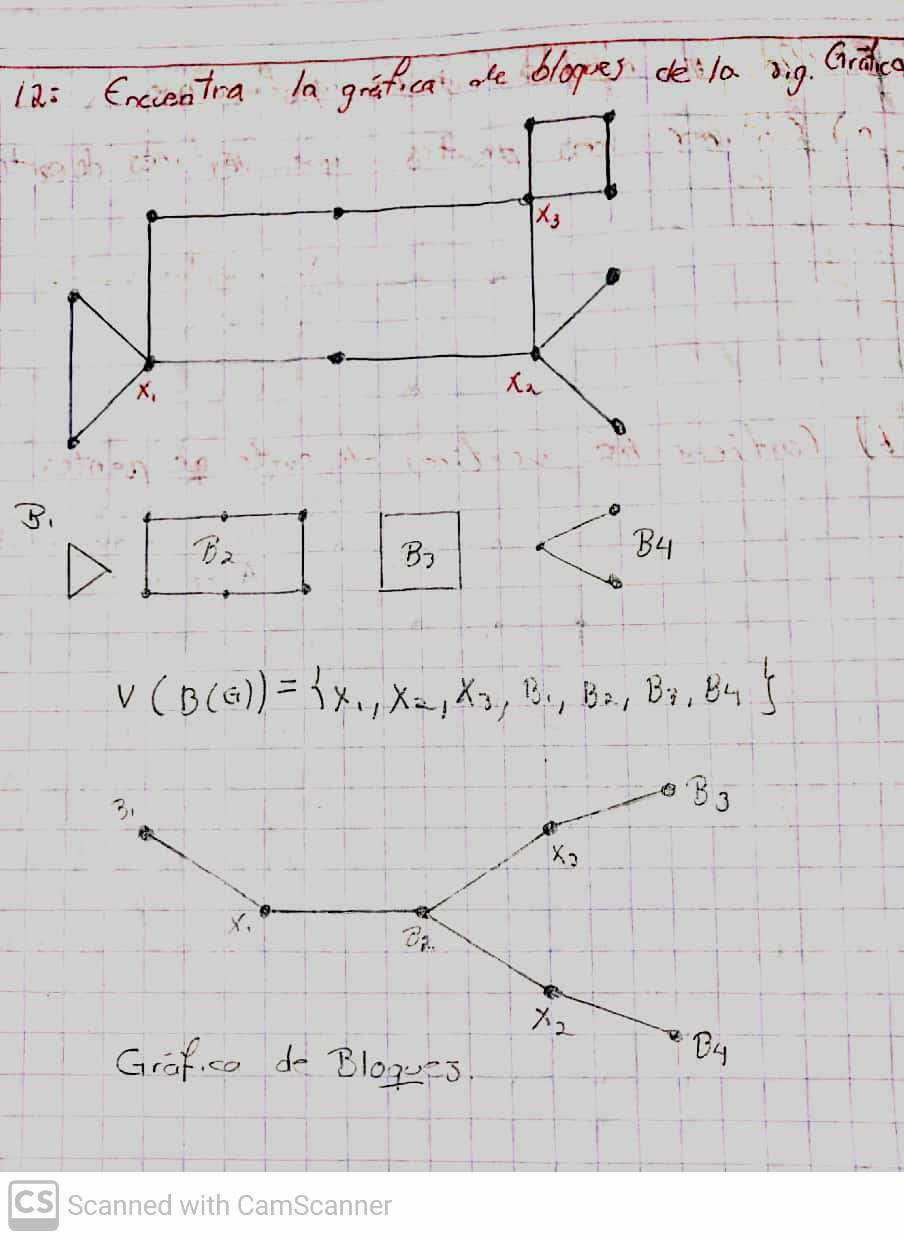 12: Encuentra la gráfica de bloques de la sig. Gráfica
X3
X1
X2
B1
B2
B3
B4
V(B(G)) = {X1, X2, X3, B1, B2, B3, B4}
B3
B1
X3
X1
B2
X2
B4
Gráfico de Bloques.
CS Scanned with CamScanner